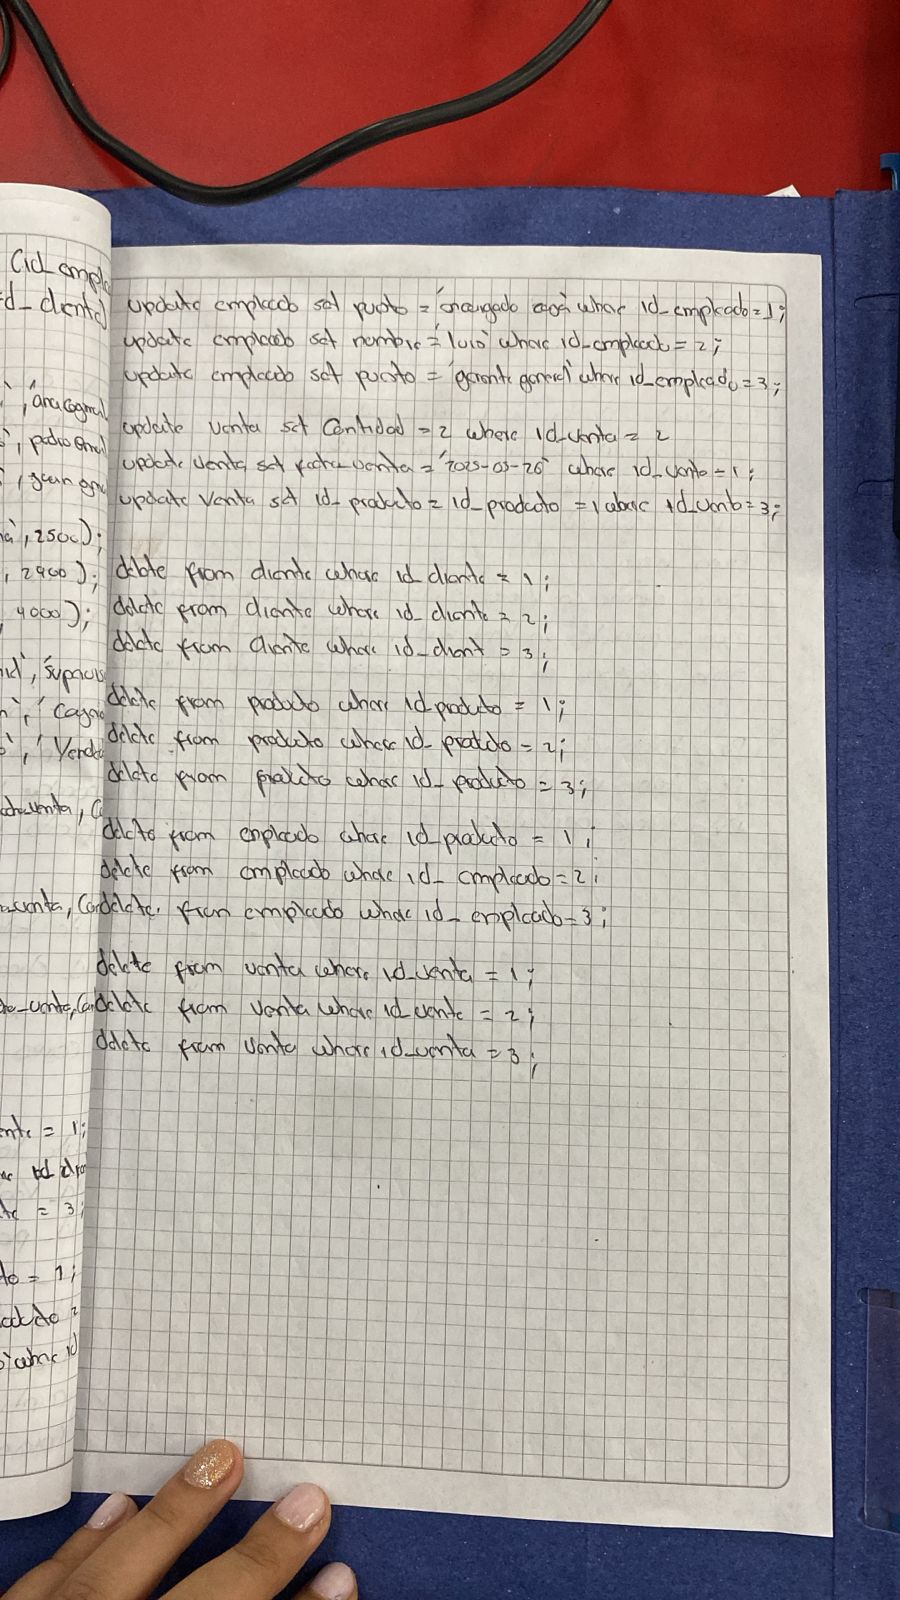 (id_emplea
d_cliente)
, ana@gmail
, pedro@mail
, juan@gmai
, 2500);
, 2900);
, 4000);
, 'Supervis
, 'Cajero
, 'Vende
enta = 1;
= 3;
to = 1;
update empleado set puesto = 'encargado where id_empleado=1;
update empleado set nombre = 'luis' where id_empleado = 2;
update empleado set puesto = 'gerente general' where id_empleado = 3;
update venta set Cantidad = 2 where id_venta = 2
update venta set fecha_venta = '2025-03-26' where id_venta = 1;
update venta set id_producto = id_producto = 1 where id_venta = 3;
delete from cliente where id_cliente = 1;
delete from cliente where id_cliente = 2;
delete from cliente where id_client = 3;
delete from producto where id_producto = 1;
delete from producto where id_producto = 2;
delete from producto where id_producto = 3;
delete from empleado where id_producto = 1;
delete from empleado where id_empleado = 2;
delete from empleado where id_empleado = 3;
delete from venta where id_venta = 1;
delete from venta where id_venta = 2;
delete from venta where id_venta = 3;